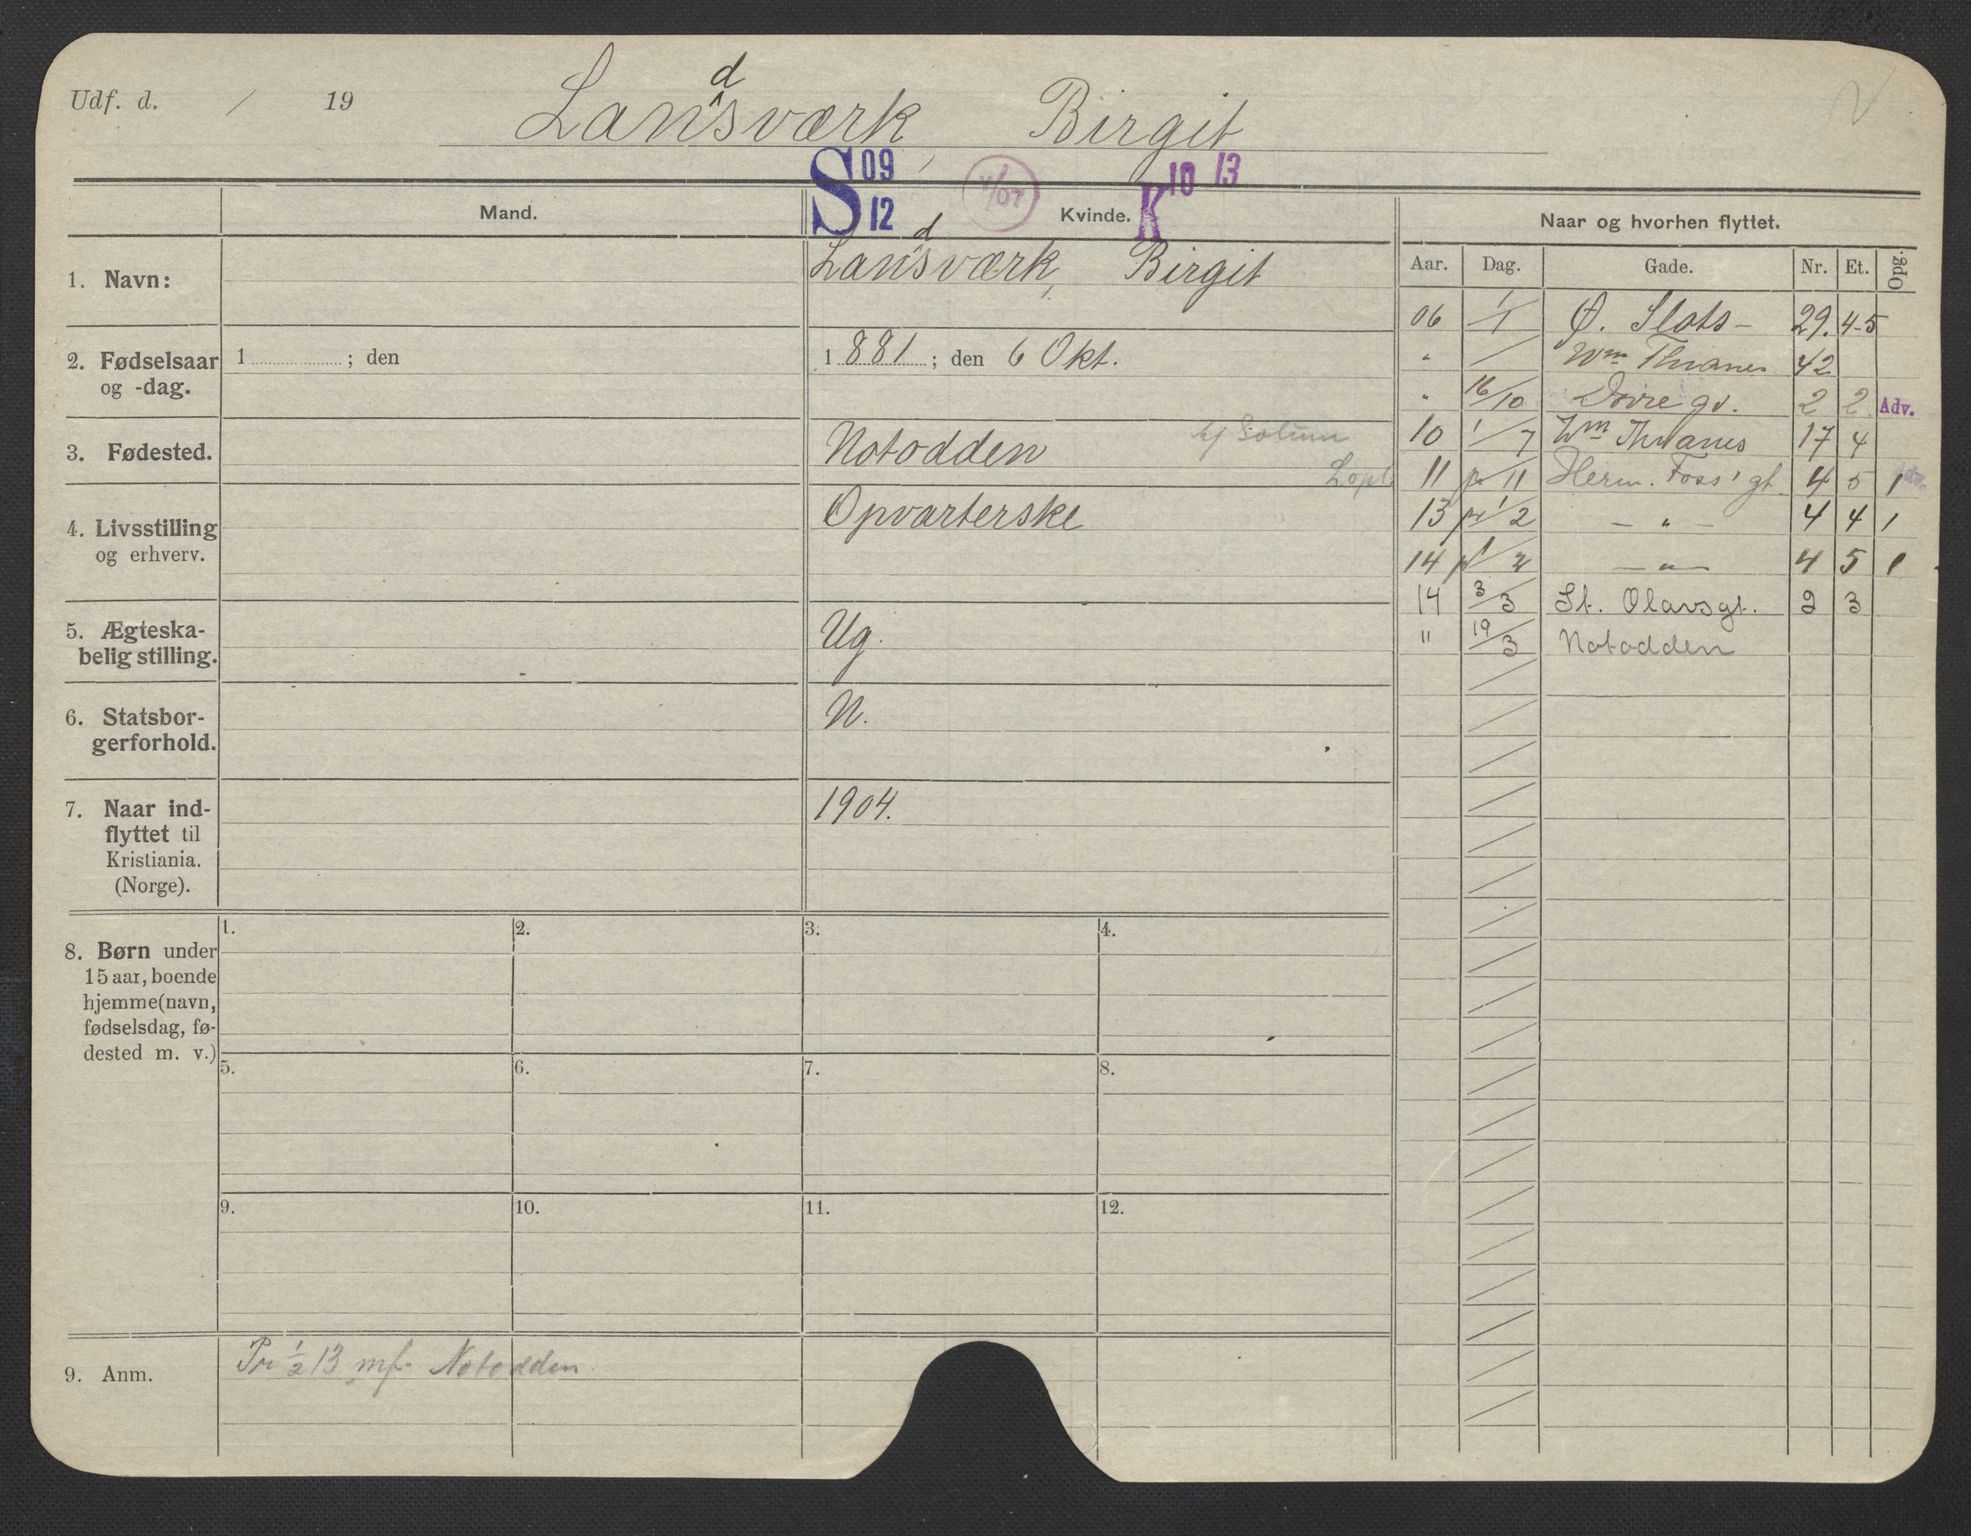 Udf. d. / 19
Landsværk, Birgit
S 09 12 K 10 13
Mand. Kvinde. Naar og hvorhen flyttet.
Aar. Dag. Gade. Nr. Et. Opg:
1. Navn: Landsværk, Birgit
2. Fødselsaar og -dag. 1 ; den 1881 ; den 6 Okt.
3. Fødested. Notodden
4. Livsstilling og erhverv. Opvarterske
5. Ægteskabelig stilling. Ug.
6. Statsborgerforhold. N.
7. Naar indflyttet til Kristiania. (Norge). 1904.
8. Børn under 15 aar, boende hjemme (navn, fødselsdag, fødested m. v.)
1. 2. 3. 4.
5. 6. 7. 8.
9. 10. 11. 12.
9. Anm. Pr 1/2 13 mf. Notodden.
06 1/1 Ø. Slots- 29. 4-5
" / Wm Thranes 42
" 16/10 Dovregd. 2 2. Adv.
10 1/7 Wm Thranes 17 4
11 pr 11 Herm. Foss' gt. 4 5 1
13 pr 1/2 — " — 4 4 1
14 pr 1/2 — " — 4 5 1
14 3/3 St. Olavsgt. 2 3
" 19/3 Notodden